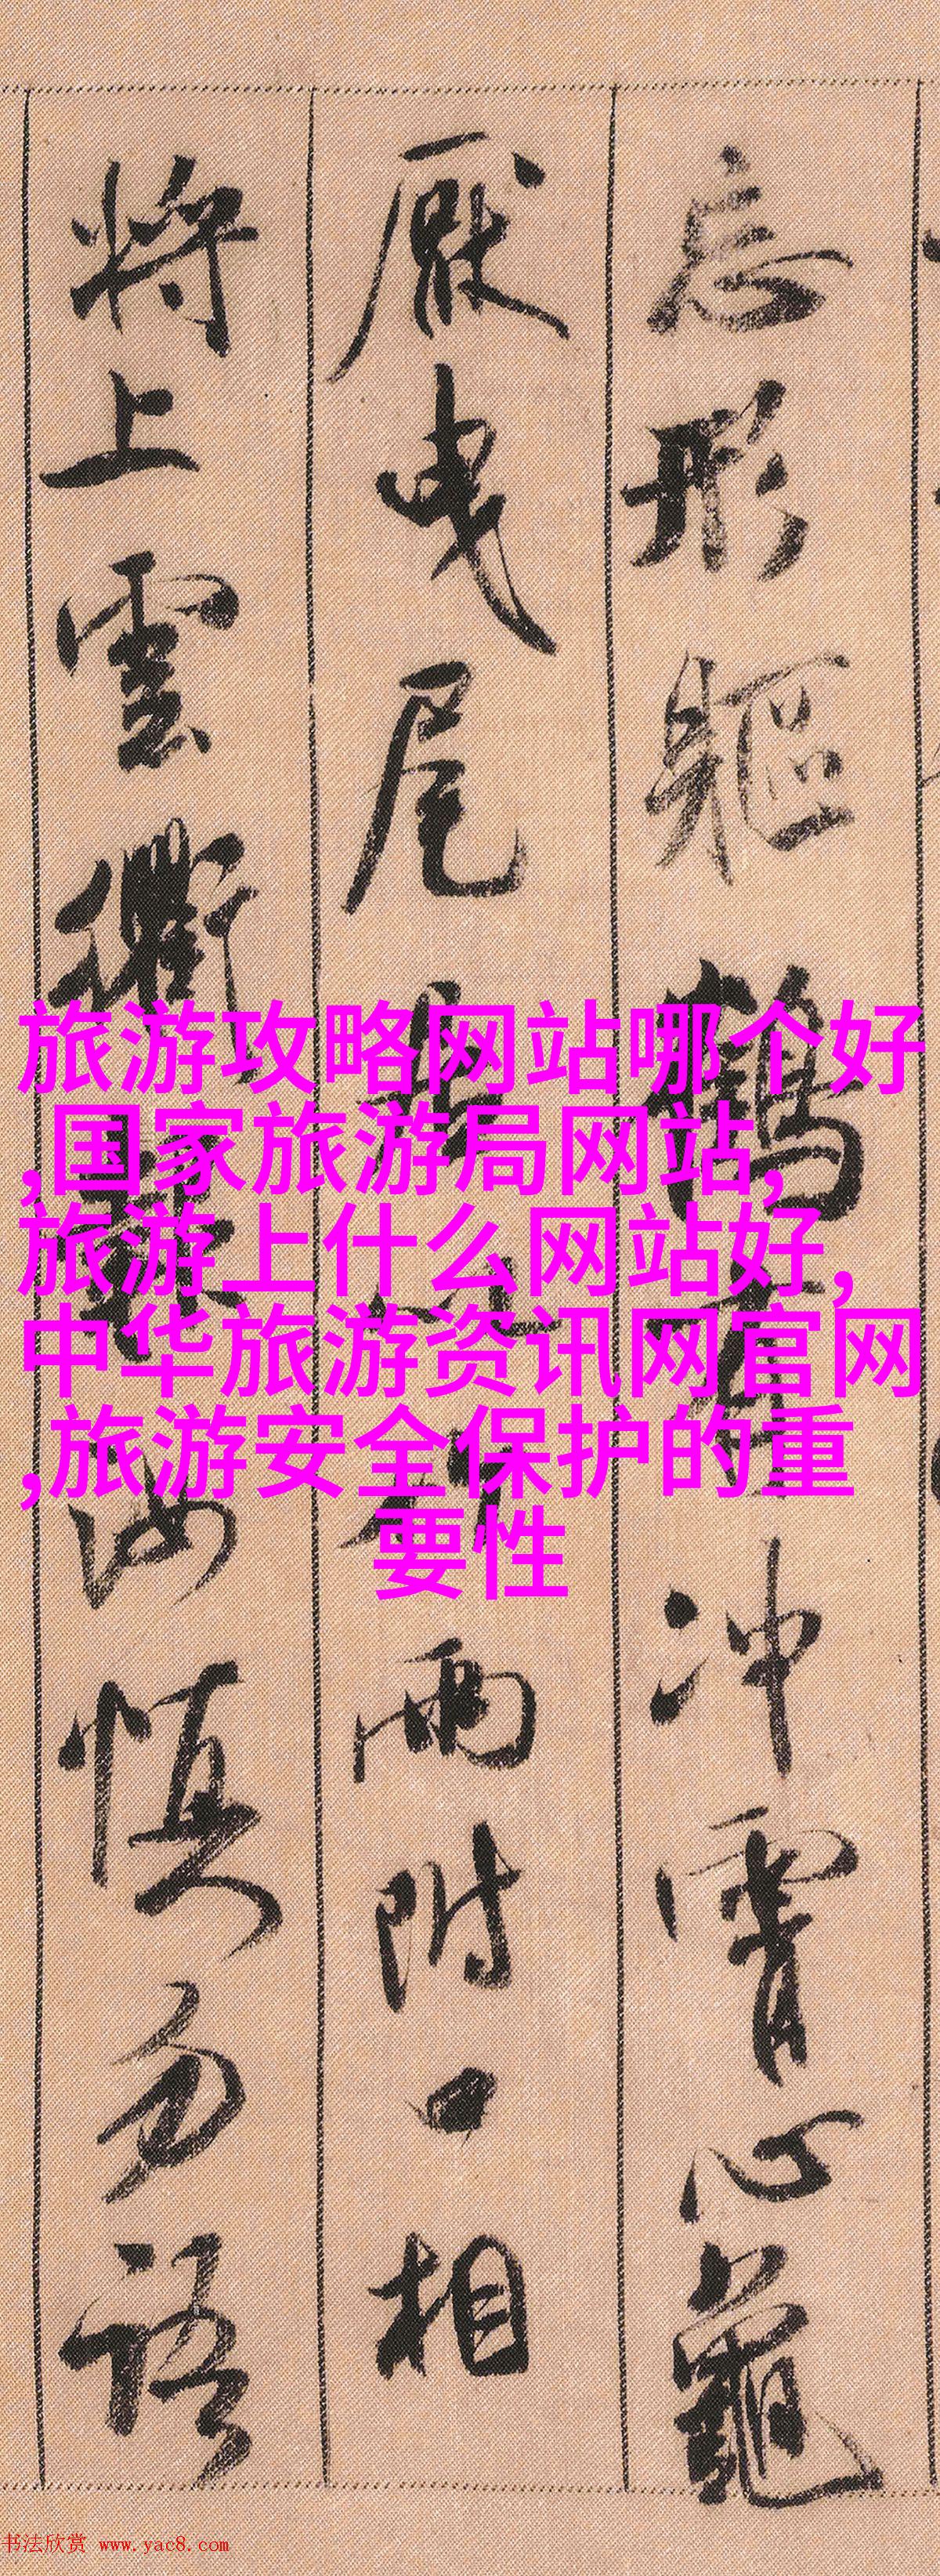 忘形軀鶴有冲霄心龜
厭曳尾居以竹兩附口相
將上雲衢報汝慎勿語
旅游攻略网站哪个好
,国家旅游局网站,
旅游上什么网站好,
中华旅游资讯网官网
,旅游安全保护的重
要性
书法欣赏 www.yac8.com